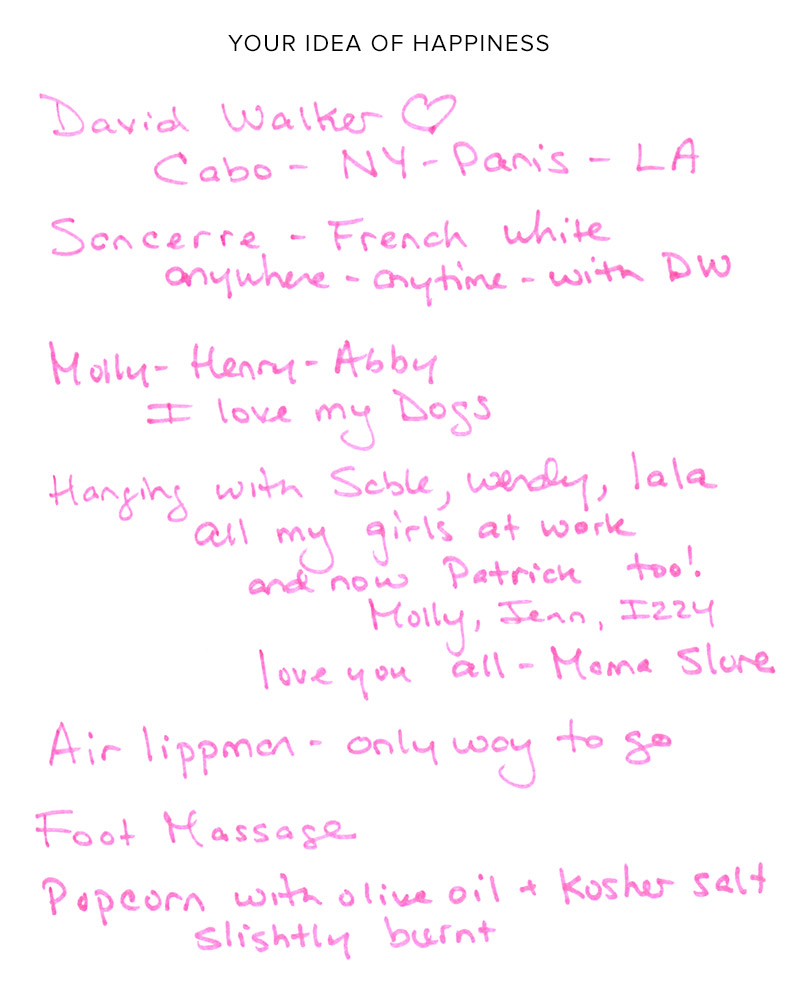 YOUR IDEA OF HAPPINESS
David Walker ♡
Cabo - NY - Paris - LA
Sancerre - French white
anywhere - anytime - with DW
Molly - Henry - Abby
I love my Dogs
Hanging with Sable, wendy, lala
all my girls at work
and now Patrick too!
Molly, Jenn, IZZY
love you all - Mama Slure
Air lippman - only way to go
Foot Massage
Popcorn with olive oil + kosher salt
slightly burnt